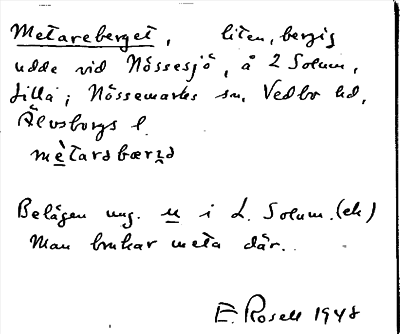 Metareberget, liten, bergig
udde vid Nössesjö, å 2 Solum,
Lilla; Nössemarks sn, Vedbo hd,
Älvsborgs l.
mètarabærja
Belägen ung. u i L. Solum. (ek)
Man brukar meta där.
E. Rosell 1948